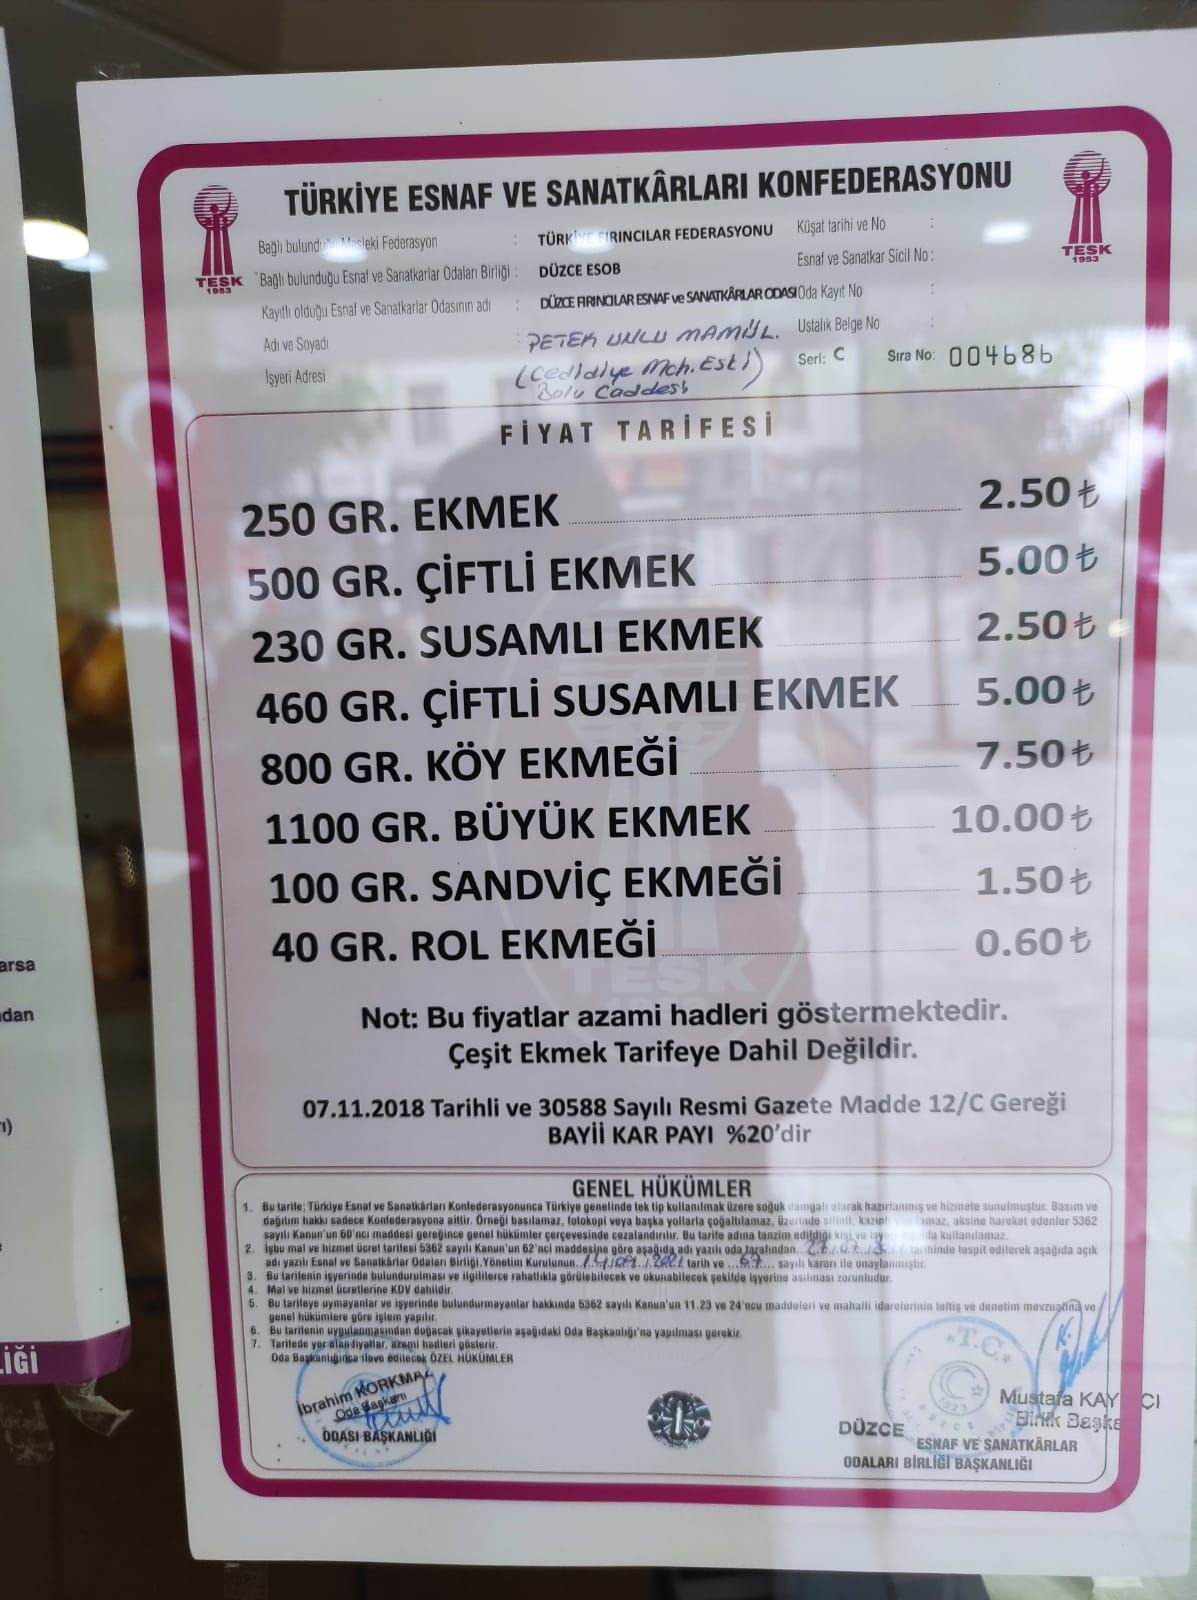 TÜRKİYE ESNAF VE SANATKÂRLARI KONFEDERASYONU
TESK
1953
TESK
1953
Bağlı bulunduğu Mesleki Federasyon : TÜRKİYE FIRINCILAR FEDERASYONU Küşat tarihi ve No :
Bağlı bulunduğu Esnaf ve Sanatkarlar Odaları Birliği : DÜZCE ESOB Esnaf ve Sanatkar Sicil No :
Kayıtlı olduğu Esnaf ve Sanatkarlar Odasının adı : DÜZCE FIRINCILAR ESNAF ve SANATKÂRLAR ODASI Oda Kayıt No :
Adı ve Soyadı : PETEK UNLU MAMÜL. Ustalık Belge No :
İşyeri Adresi (Cedidiye Mch. Eski) Seri: C Sıra No: 004686
Bolu Caddesi
FİYAT TARİFESİ
250 GR. EKMEK 2.50 ₺
500 GR. ÇİFTLİ EKMEK 5.00 ₺
230 GR. SUSAMLI EKMEK 2.50 ₺
460 GR. ÇİFTLİ SUSAMLI EKMEK 5.00 ₺
800 GR. KÖY EKMEĞİ 7.50 ₺
1100 GR. BÜYÜK EKMEK 10.00 ₺
100 GR. SANDVİÇ EKMEĞİ 1.50 ₺
40 GR. ROL EKMEĞİ 0.60 ₺
TESK
Not: Bu fiyatlar azami hadleri göstermektedir.
Çeşit Ekmek Tarifeye Dahil Değildir.
07.11.2018 Tarihli ve 30588 Sayılı Resmi Gazete Madde 12/C Gereği
BAYİİ KAR PAYI %20'dir
GENEL HÜKÜMLER
1. Bu tarife; Türkiye Esnaf ve Sanatkârları Konfederasyonunca Türkiye genelinde tek tip kullanılmak üzere soğuk damgalı olarak hazırlanmış ve hizmete sunulmuştur. Basım ve
dağıtım hakkı sadece Konfederasyona aittir. Örneği basılamaz, fotokopi veya başka yollarla çoğaltılamaz, üzerinde silinti, kazıntı yapılamaz, aksine hareket edenler 5362
sayılı Kanun'un 60'ncı maddesi gereğince genel hükümler çerçevesinde cezalandırılır. Bu tarife adına tanzim edildiği kişi ve işyeri dışında kullanılamaz.
2. İşbu mal ve hizmet ücret tarifesi 5362 sayılı Kanun'un 62'nci maddesine göre aşağıda adı yazılı oda tarafından tarihinde tespit edilerek aşağıda açık
adı yazılı Esnaf ve Sanatkârlar Odaları Birliği Yönetim Kurulunun tarih ve 67 sayılı kararı ile onaylanmıştır.
3. Bu tarifenin işyerinde bulundurulması ve ilgililerce rahatlıkla görülebilecek ve okunabilecek şekilde işyerine asılması zorunludur.
4. Mal ve hizmet ücretlerine KDV dahildir.
5. Bu tarifeye uymayanlar ve işyerinde bulundurmayanlar hakkında 5362 sayılı Kanun'un 11.23 ve 24'ncu maddeleri ve mahalli idarelerinin teftiş ve denetim mevzuatına ve
genel hükümlere göre işlem yapılır.
6. Bu tarifenin uygulanmasından doğacak şikayetlerin aşağıdaki Oda Başkanlığı'na yapılması gerekir.
7. Tarifede yer alan fiyatlar, azami hadleri gösterir.
Oda Başkanlığınca ilave edilecek ÖZEL HÜKÜMLER
İbrahim KORKMAZ
Oda Başkanı
ODASI BAŞKANLIĞI
T.C.
1923
Mustafa KAY CI
Birlik Başka
DÜZCE
ESNAF VE SANATKÂRLAR
ODALARI BİRLİĞİ BAŞKANLIĞI
arsa
ndan
LİĞİ